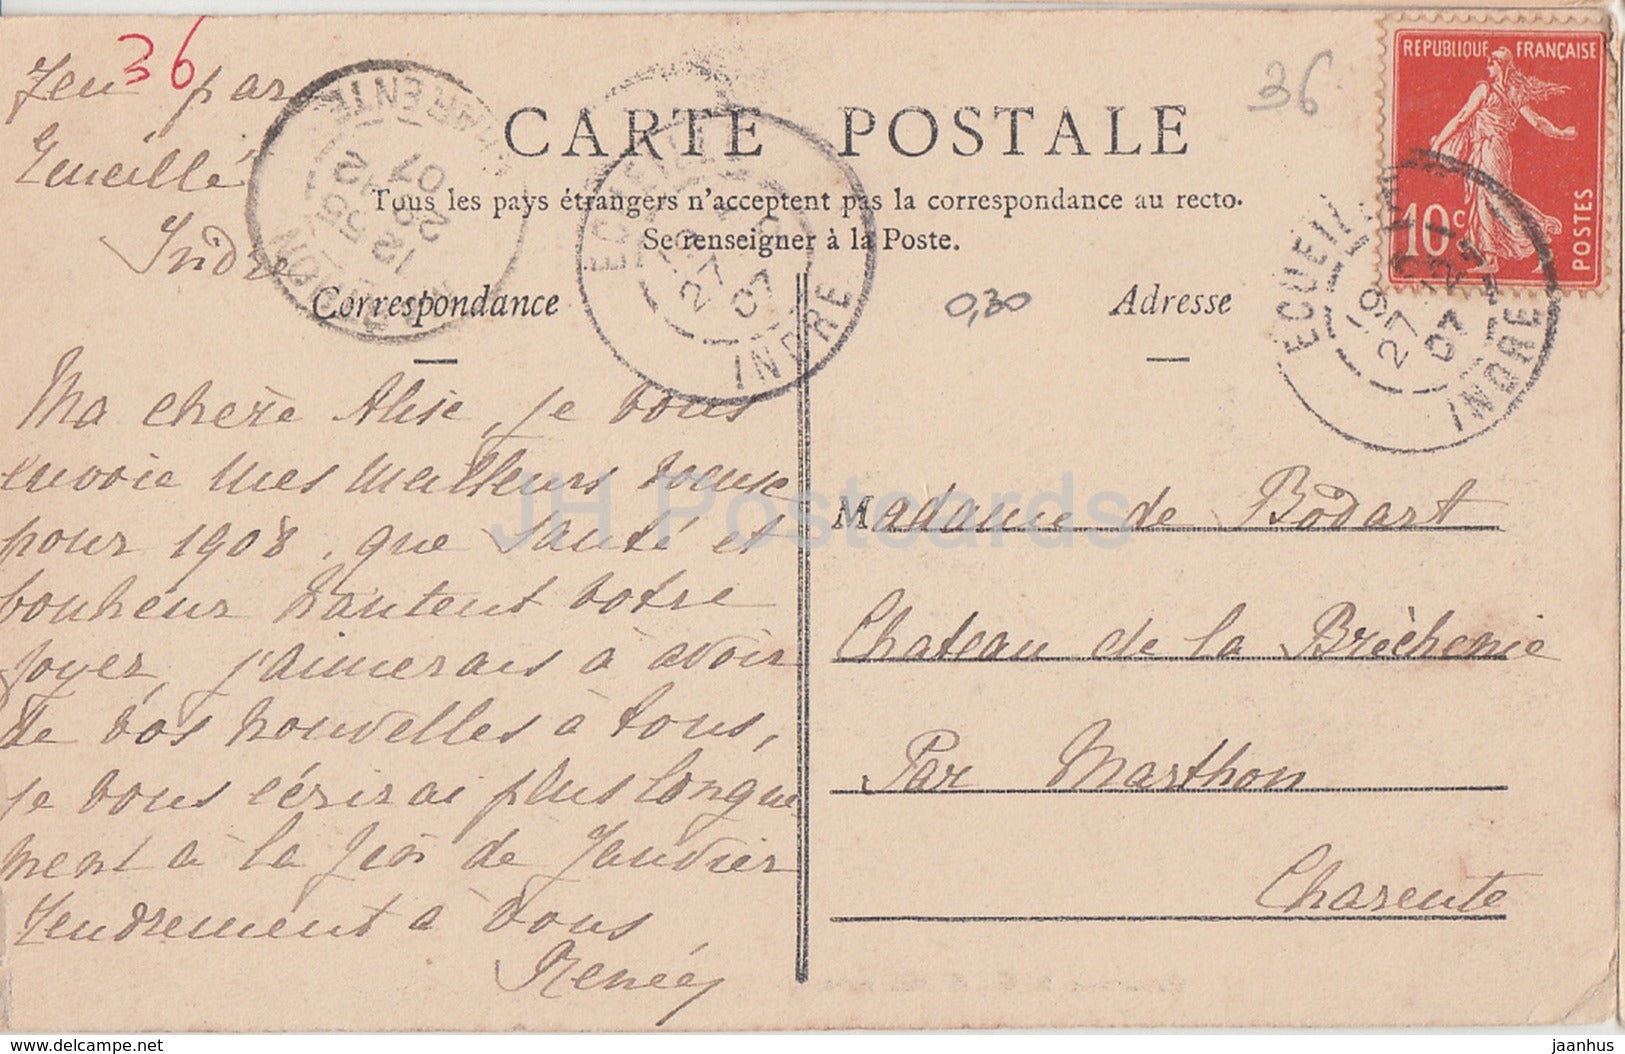 36
Jeu par
Ecueillé
Indre
CARTE POSTALE
Tous les pays étrangers n'acceptent pas la correspondance au recto.
Se renseigner à la Poste.
Correspondance
Adresse
0,30
36
REPUBLIQUE FRANÇAISE
10c
POSTES
ECUEILLE
19
27 12
07
INDRE
ECUEILLE
19
27 12
07
INDRE
CHARENTE
12 55
28 12
07
Ma chère Alise, je vous
envoie mes meilleurs voeux
pour 1908, que santé et
bonheur hantent votre
foyer, j'aimerais à avoir
de vos nouvelles à tous,
je vous écrirai plus longue
ment à la fin de Janvier
Tendrement à vous
Renée
Madame de Bodart
Chateau de la Brèchenie
Par Marthon
Charente
JH Postcards
www.delcampe.net
jaanhus